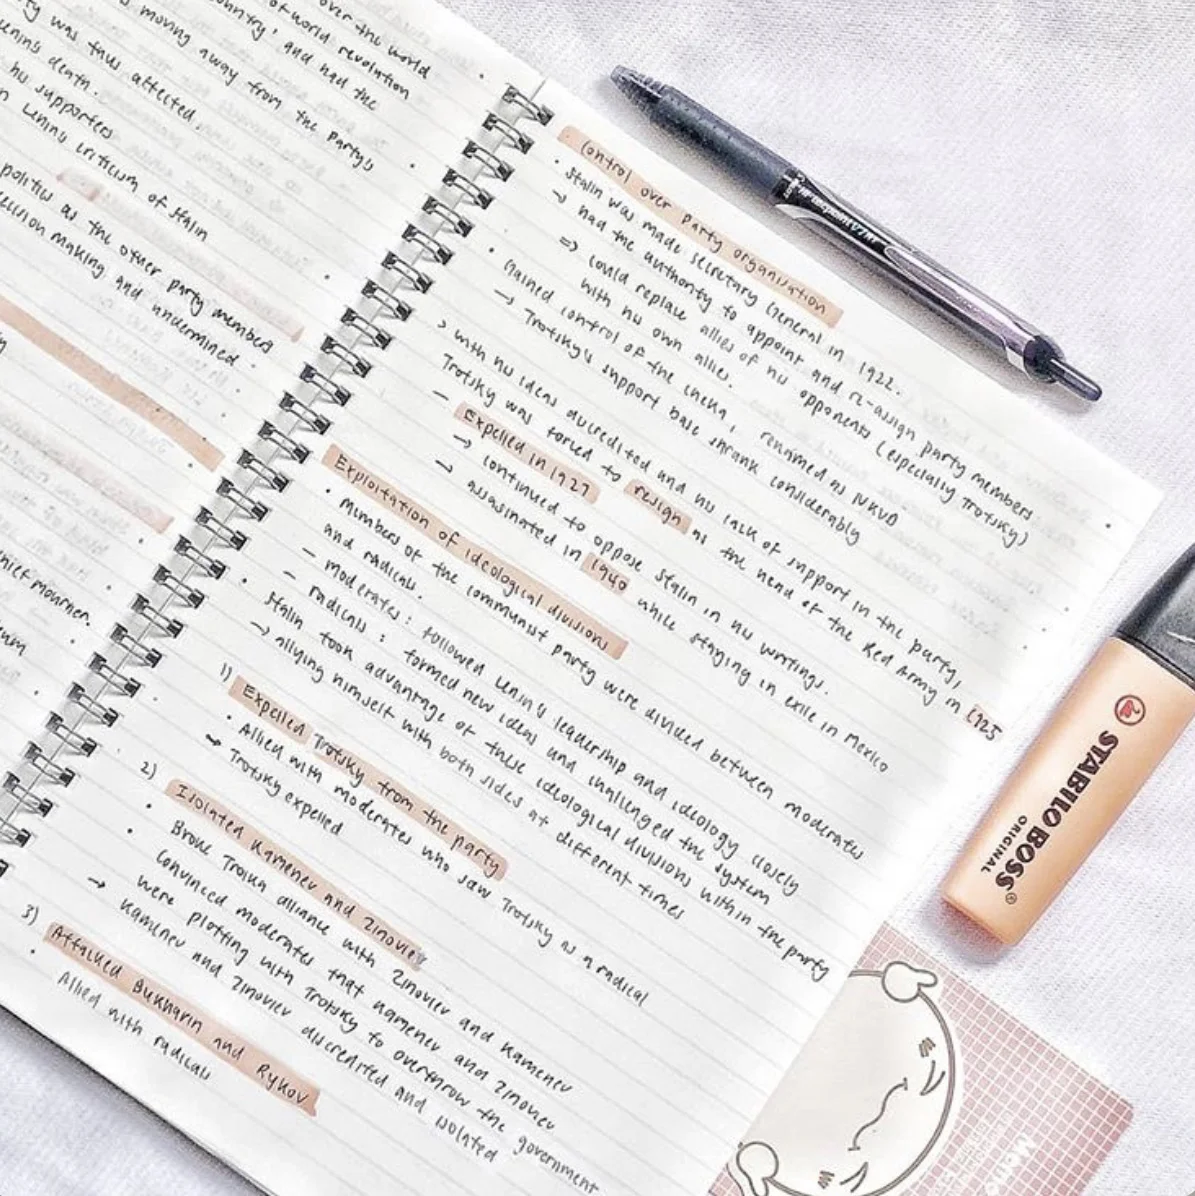 over the world
of world revolution
country', and had the
was thus affected.
moving away from the party's
Lenin's death.
his supporters
Lenin's criticism of Stalin
politics as the other party members
decision making and undermined
chief mourner.
Control over party organisation
• Stalin was made secretary General in 1922.
→ had the authority to appoint and re-assign party members
⇒ could replace allies of his opponents (especially Trotsky)
with his own allies.
• Gained control of the cheka, renamed as NKVD
→ Trotsky's support base shrank considerably
> with his ideas discredited and his lack of support in the party,
Trotsky was forced to resign as the head of the Red Army in 1925
- Expelled in 1927
→ continued to oppose Stalin in his writings.
→ assassinated in 1940 while staying in exile in Mexico
Exploitation of ideological divisions
• Members of the communist party were divided between moderates
and radicals.
- moderates: followed Lenin's leadership and ideology closely
- radicals: formed new ideas and challenged the system
• Stalin took advantage of these ideological divisions within the party
→ allying himself with both sides at different times
1) Expelled Trotsky from the party
• Allied with moderates who saw Trotsky as a radical
→ Trotsky expelled
2) Isolated Kamenev and Zinoviev
• Broke Troika alliance with Zinoviev and Kamenev
• Convinced moderates that Kamenev and Zinoviev
were plotting with Trotsky to overthrow the government
→ Kamenev and Zinoviev discredited and isolated
3) Attacked Bukharin and Rykov
• Allied with radicals
STABILO BOSS
ORIGINAL